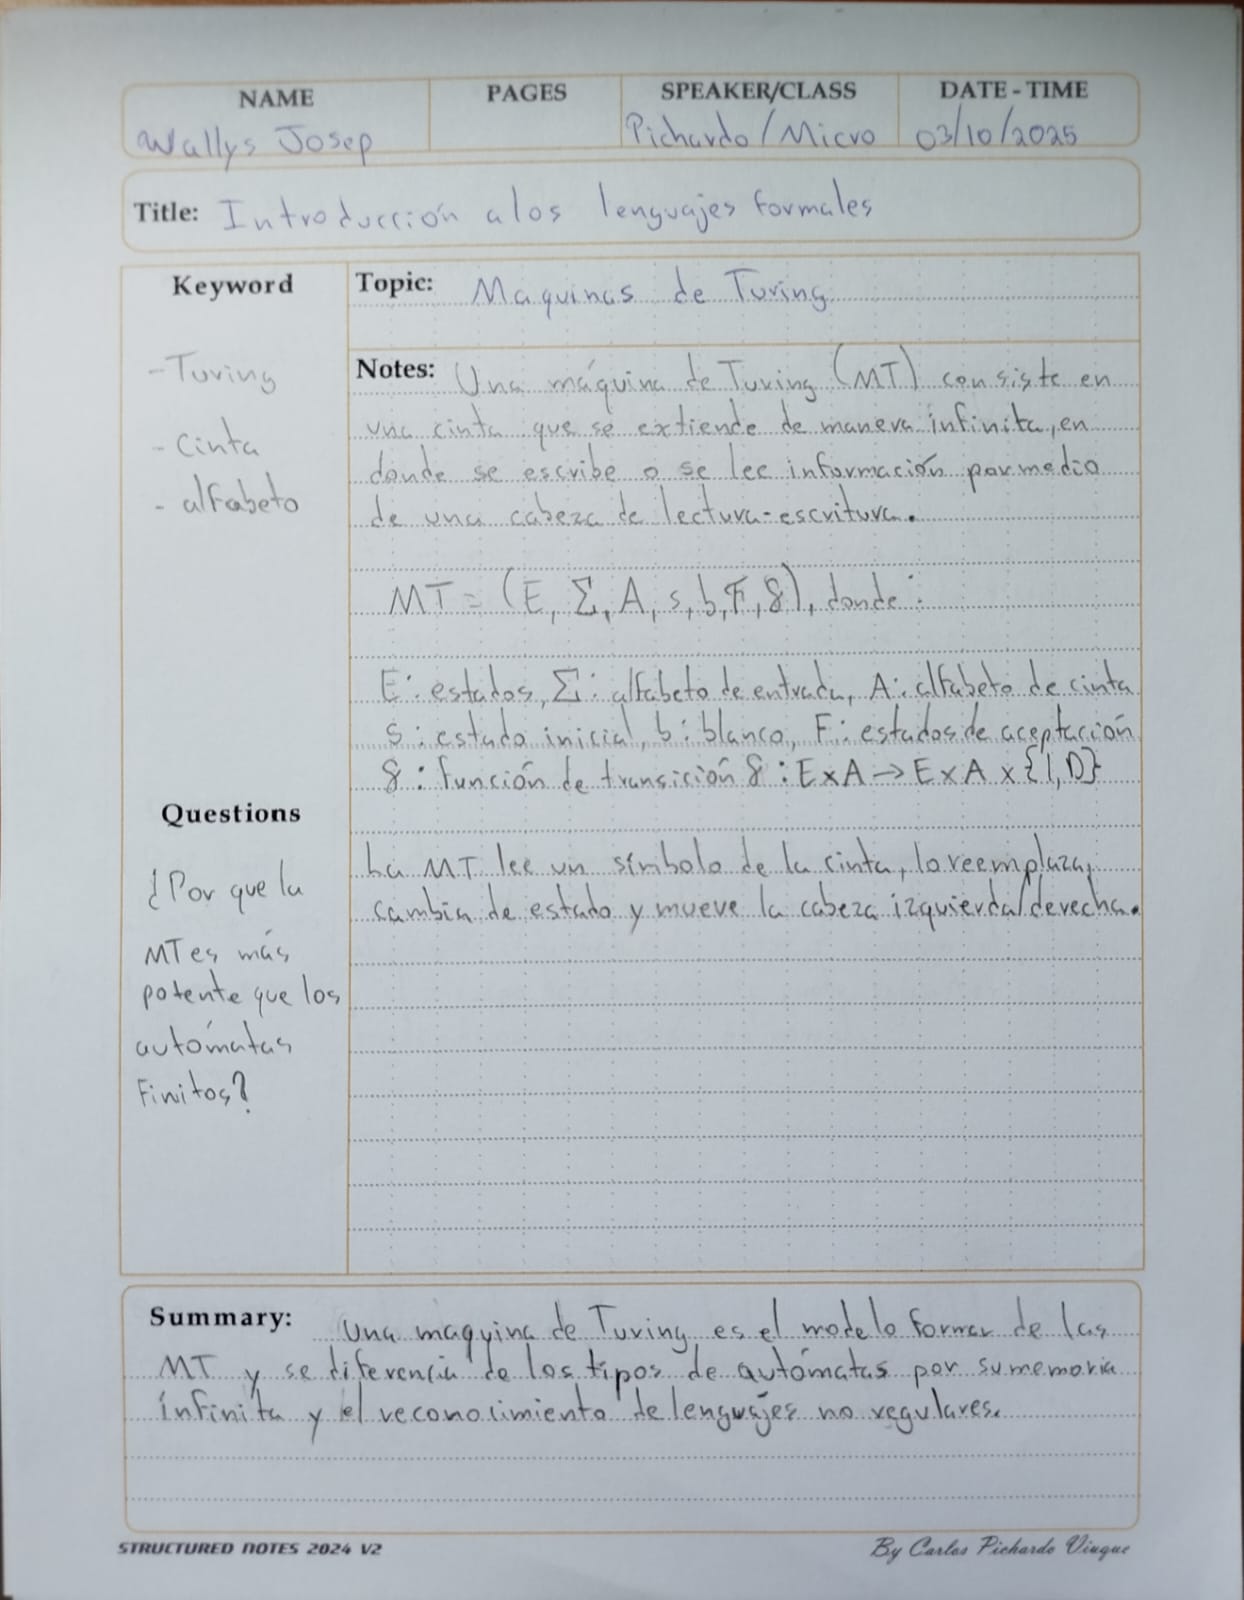 NAME PAGES SPEAKER/CLASS DATE - TIME
Wallys Josep Pichardo/Micro 03/10/2025
Title: Introducción a los lenguajes formales
Keyword
- Turing
- Cinta
- alfabeto
Topic: Maquinas de Turing
Notes: Una máquina de Turing (MT) consiste en
una cinta que se extiende de manera infinita, en
donde se escribe o se lee información por medio
de una cabeza de lectura-escritura.
MT = (E, Σ, A, s, b, F, δ), donde:
E: estados, Σ: alfabeto de entrada, A: alfabeto de cinta
S: estado inicial, b: blanco, F: estados de aceptación
δ: función de transición δ: E x A → E x A x {I, D}
La MT lee un símbolo de la cinta, lo reemplaza,
cambia de estado y mueve la cabeza izquierda/derecha.
Questions
¿Por que la
MT es más
potente que los
autómatas
Finitos?
Summary: Una maquina de Turing es el modelo formar de las
MT y se diferencia de los tipos de autómatas por su memoria
infinita y el reconocimiento de lenguajes no regulares.
STRUCTURED NOTES 2024 V2 By Carlos Pichardo Viuque